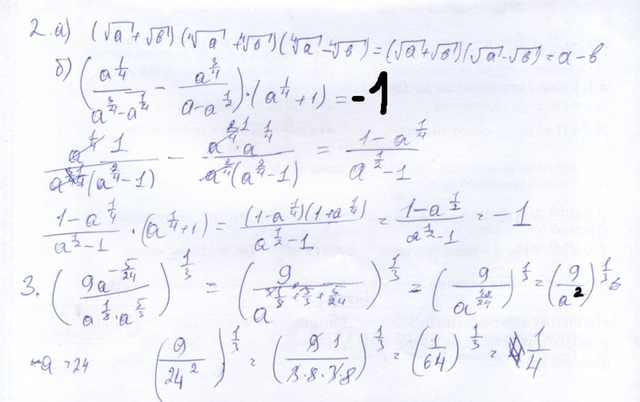 2. а) (√a + √b)(⁴√a + ⁴√b)(⁴√a - ⁴√b) = (√a + √b)(√a - √b) = a - b
б) (a^{1/4}/(a^{3/4} - a^{1/4}) - a^{3/4}/(a - a^{1/2})) · (a^{1/4} + 1) = -1
1/(a^{2/4} - 1) - a^{1/4}/(a^{2/4} - 1) = (1 - a^{1/4})/(a^{1/2} - 1)
(1 - a^{1/4})/(a^{1/2} - 1) · (a^{1/4} + 1) = ((1 - a^{1/4})(1 + a^{1/4}))/(a^{1/2} - 1) = (1 - a^{1/2})/(a^{1/2} - 1) = -1
3. (9a^{-5/24}/(a^{1/8} · a^{5/3}))^{1/3} = (9/a^{1/8 + 5/3 + 5/24})^{1/3} = (9/a^{48/24})^{1/3} = (9/a^2)^{1/3}
a = 24 (9/24^2)^{1/3} = (9 1/(3·8·3·8))^{1/3} = (1/64)^{1/3} = 1/4